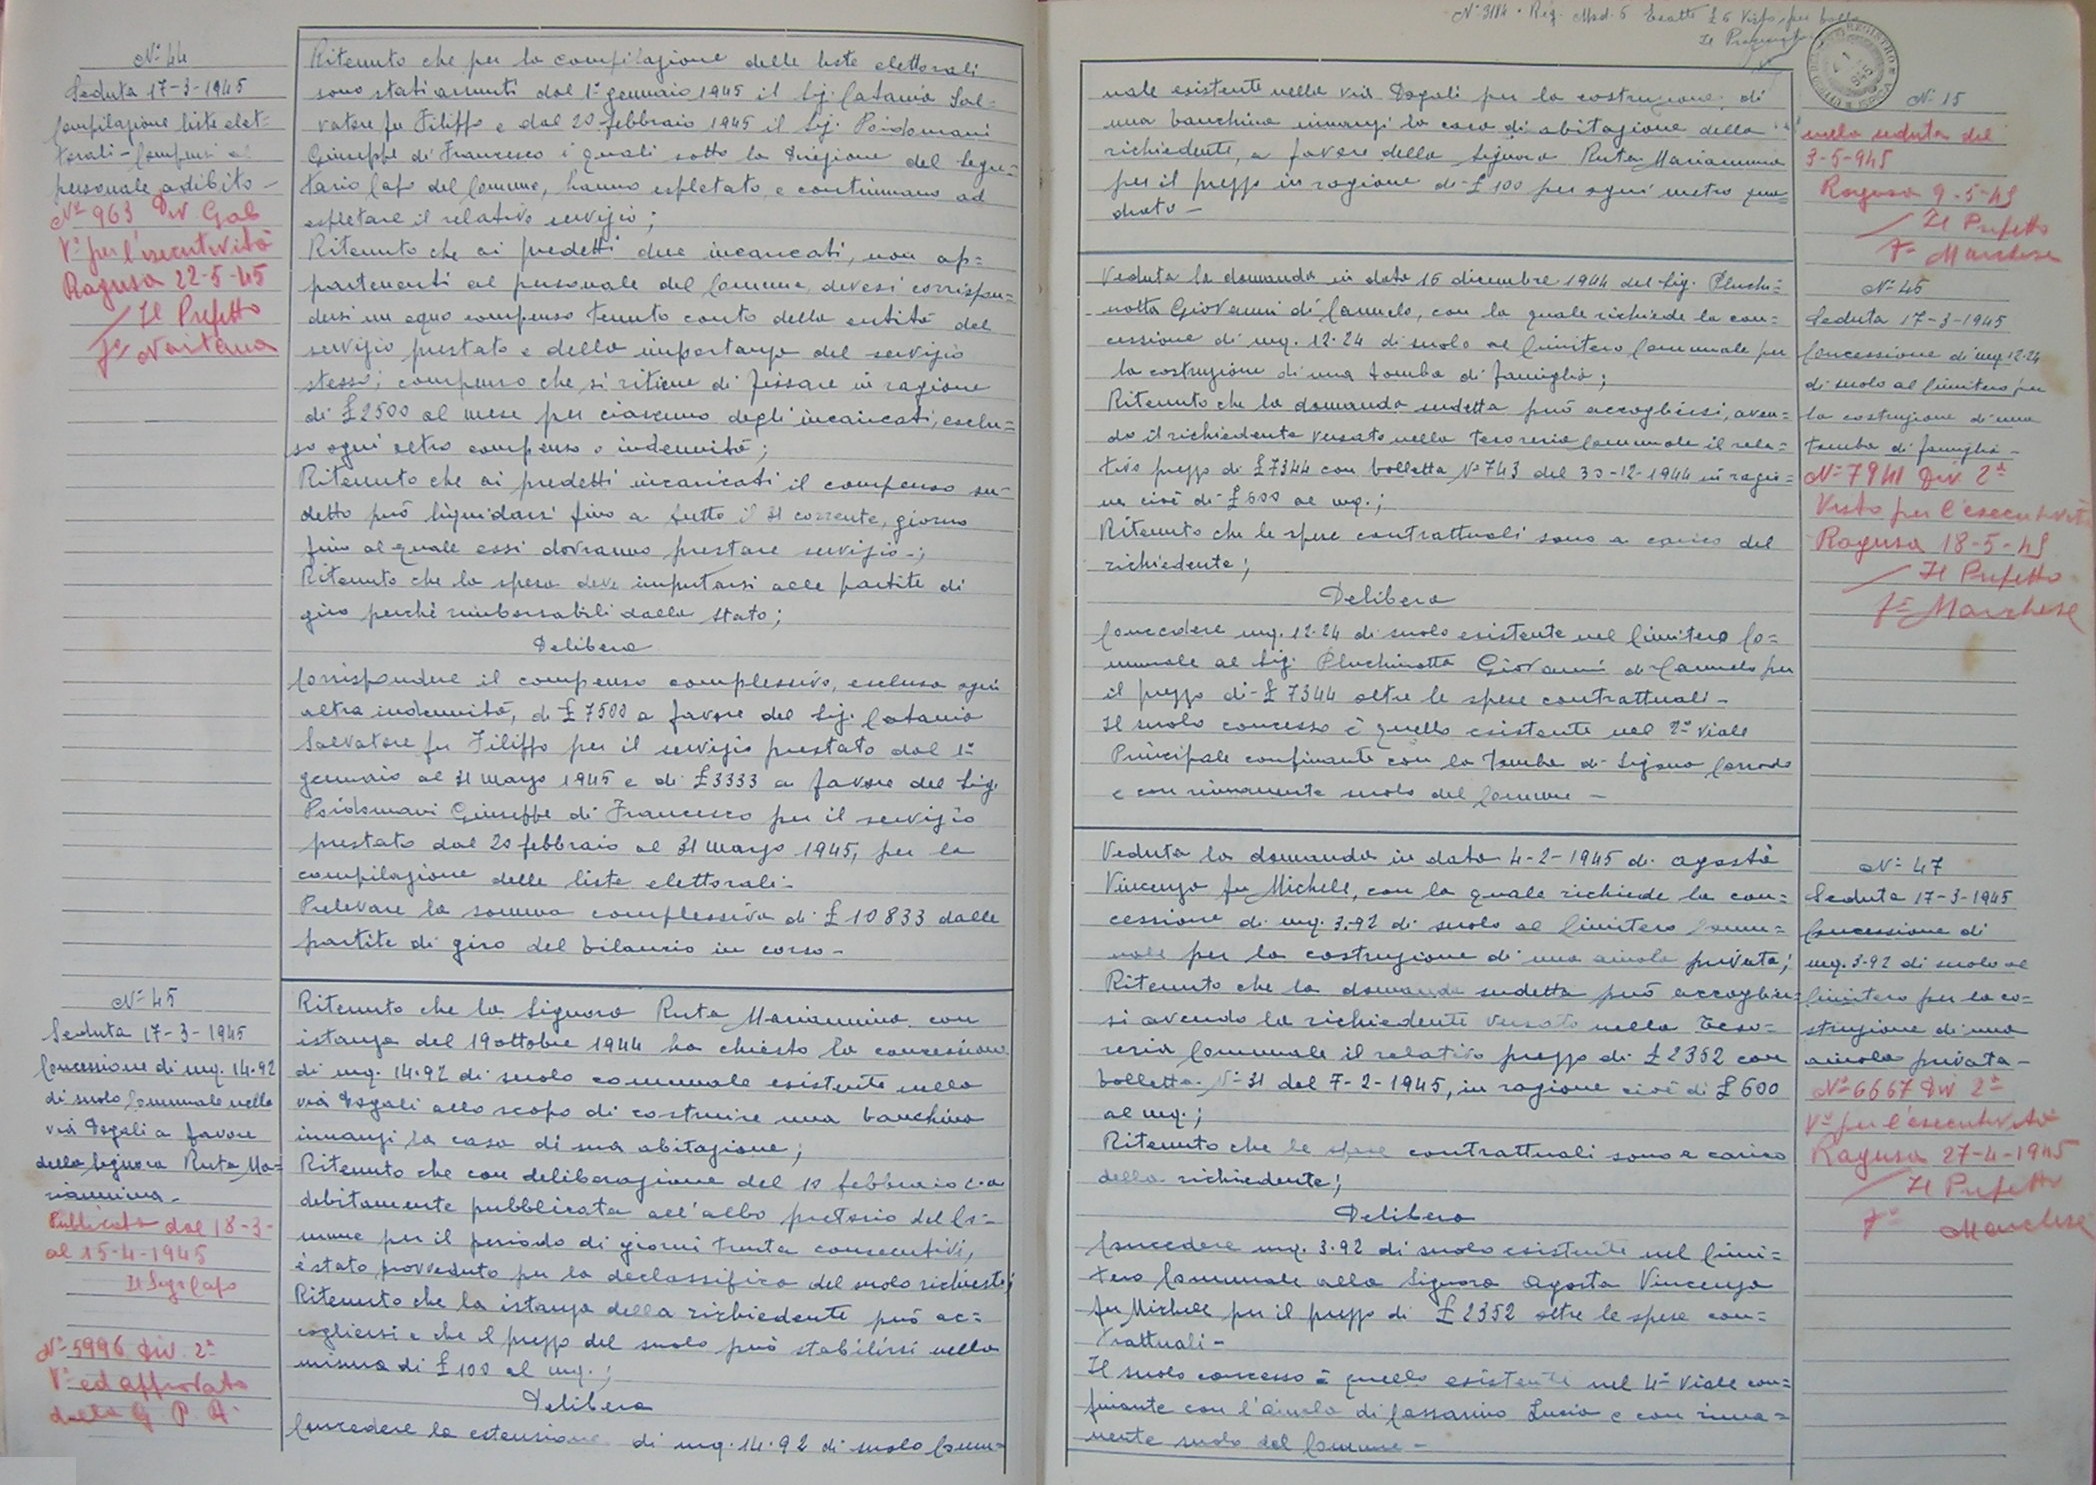 N° 44
Seduta 17-3-1945
Compilazione liste elet-
torali - Compensi al
personale adibito -
N° 963 Div Gab
V° per l'esecutività
Ragusa 22-5-45
Il Prefetto
F°
Ritenuto che per la compilazione delle liste elettorali
sono stati assunti dal 1° gennaio 1945 il Sig. Catania Sal=
vatore fu Filippo e dal 20 febbraio 1945 il Sig. Poidomani
Giuseppe di Francesco i quali sotto la direzione del Segre=
tario Capo del Comune, hanno espletato e continuano ad
espletare il relativo servizio;
Ritenuto che ai predetti due incaricati, non ap=
partenenti al personale del Comune, devesi corrispon=
dersi un equo compenso tenuto conto della entità del
servizio prestato e della importanza del servizio
stesso; compenso che si ritiene di fissare in ragione
di £ 2500 al mese per ciascuno degli incaricati, esclu=
so ogni altro compenso o indennità;
Ritenuto che ai predetti incaricati il compenso su=
detto può liquidarsi fino a tutto il 31 corrente, giorno
fino al quale essi dovranno prestare servizio -;
Ritenuto che la spesa deve imputarsi alle partite di
giro perchè rimborsabili dallo Stato;
Delibera
Corrispondere il compenso complessivo, escluso ogni
altra indennità, di £ 7500 a favore del Sig. Catania
Salvatore fu Filippo per il servizio prestato dal 1°
gennaio al 31 marzo 1945 e di £ 3333 a favore del Sig.
Poidomani Giuseppe di Francesco per il servizio
prestato dal 20 febbraio al 31 marzo 1945, per la
compilazione delle liste elettorali -
Prelevare la somma complessiva di £ 10833 dalle
partite di giro del bilancio in corso -
N° 45
Seduta 17-3-1945
Concessione di mq. 14.92
di suolo Comunale nella
via Dogali a favore
della Signora Ruta Ma=
riannina -
Pubblicata dal 18-3-
al 15-4-1945
Il Segr Capo
N° 5996 Div. 2ª
V° ed approvato
dalla G. P. A.
Ritenuto che la Signora Ruta Mariannina con
istanza del 19 ottobre 1944 ha chiesto la concessione
di mq. 14.92 di suolo comunale esistente nella
via Dogali allo scopo di costruire una banchina
innanzi la casa di sua abitazione;
Ritenuto che con deliberazione del 10 febbraio c.a.
debitamente pubblicata all'albo pretorio del Co=
mune per il periodo di giorni trenta consecutivi,
è stato provveduto per la declassifica del suolo richiesto;
Ritenuto che la istanza della richiedente può ac=
cogliersi e che il prezzo del suolo può stabilirsi nella
misura di £ 100 al mq.;
Delibera
Concedere la estensione di mq. 14.92 di suolo Comu=
N° 3114 - Reg. Mod. 5 Esatte £ 6 Visto per bollo
Il
nale esistente nella via Dogali per la costruzione di
una banchina innanzi la casa di abitazione della
richiedente, a favore della Signora Ruta Mariannina
per il prezzo in ragione di £ 100 per ogni metro qua=
drato -
N. 15
nella seduta del
3-5-945
Ragusa 9-5-45
Il Prefetto
F° Marchese
Veduta la domanda in data 16 dicembre 1944 del Sig. Pluchi=
notta Giovanni di Carmelo, con la quale richiede la con=
cessione di mq. 12.24 di suolo al Cimitero Comunale per
la costruzione di una tomba di famiglia;
Ritenuto che la domanda sudetta può accogliersi, aven=
do il richiedente versato nella Tesoreria Comunale il rela=
tivo prezzo di £ 7344 con bolletta N° 743 del 30-12-1944 in ragio=
ne cioè di £ 600 al mq.;
Ritenuto che le spese contrattuali sono a carico del
richiedente;
Delibera
Concedere mq. 12.24 di suolo esistente nel Cimitero Co=
munale al Sig. Pluchinotta Giovanni di Carmelo per
il prezzo di £ 7344 oltre le spese contrattuali -
Il suolo concesso è quello esistente nel 2° viale
Principale confinante con la tomba di Corrado
e con rimanente suolo del Comune -
N° 46
Seduta 17-3-1945
Concessione di mq 12.24
di suolo al Cimitero per
la costruzione di una
tomba di famiglia -
N° 7941 Div. 2ª
Visto per l'esecutività
Ragusa 18-5-45
Il Prefetto
F° Marchese
Veduta la domanda in data 4-2-1945 di Agosta
Vincenza fu Michele, con la quale richiede la con=
cessione di mq. 3.92 di suolo al Cimitero Comu=
nale per la costruzione di una aiuola privata;
Ritenuto che la domanda sudetta può accoglier=
si avendo la richiedente versato nella Teso=
reria Comunale il relativo prezzo di £ 2352 con
bolletta N° 31 del 7-2-1945, in ragione cioè di £ 600
al mq.;
Ritenuto che le spese contrattuali sono a carico
della richiedente;
Delibera
Concedere mq. 3.92 di suolo esistente nel Cimi=
tero Comunale alla Signora Agosta Vincenza
fu Michele per il prezzo di £ 2352 oltre le spese con=
trattuali -
Il suolo concesso è quello esistente nel 4° viale con=
finante con l'aiuola di Cassarino Lucia e con rima=
nente suolo del Comune -
N° 47
Seduta 17-3-1945
Concessione di
mq. 3.92 di suolo al
Cimitero per la co=
struzione di una
aiuola privata -
N° 6667 Div 2ª
V° per l'esecutività
Ragusa 27-4-1945
Il Prefetto
F° Marchese